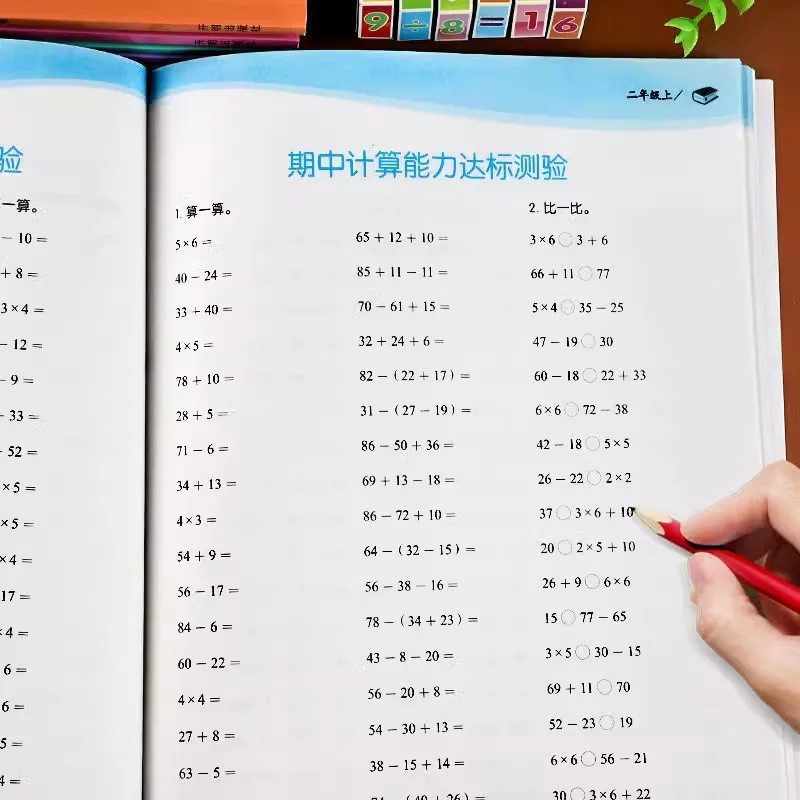 9 ÷ 8 = 1 6
二年级上/
验
期中计算能力达标测验
一算。
- 10 =
+ 8 =
3×4 =
- 12 =
- 9 =
- 33 =
+ 52 =
×5 =
×5 =
×4 =
17 =
×4 =
6 =
6 =
5 =
4 =
1. 算一算。
5×6 =
40 - 24 =
33 + 40 =
4×5 =
78 + 10 =
28 + 5 =
71 - 6 =
34 + 13 =
4×3 =
54 + 9 =
56 - 17 =
84 - 6 =
60 - 22 =
4×4 =
27 + 8 =
63 - 5 =
65 + 12 + 10 =
85 + 11 - 11 =
70 - 61 + 15 =
32 + 24 + 6 =
82 -(22 + 17)=
31 -(27 - 19)=
86 - 50 + 36 =
69 + 13 - 18 =
86 - 72 + 10 =
64 -(32 - 15)=
56 - 38 - 16 =
78 -(34 + 23)=
43 - 8 - 20 =
56 - 20 + 8 =
54 - 30 + 13 =
38 - 15 + 14 =
2. 比一比。
3×6○3 + 6
66 + 11○77
5×4○35 - 25
47 - 19○30
60 - 18○22 + 33
6×6○72 - 38
42 - 18○5×5
26 - 22○2×2
37○3×6 + 10
20○2×5 + 10
26 + 9○6×6
15○77 - 65
3×5○30 - 15
69 + 11○70
52 - 23○19
6×6○56 - 21
30○3×6 + 22